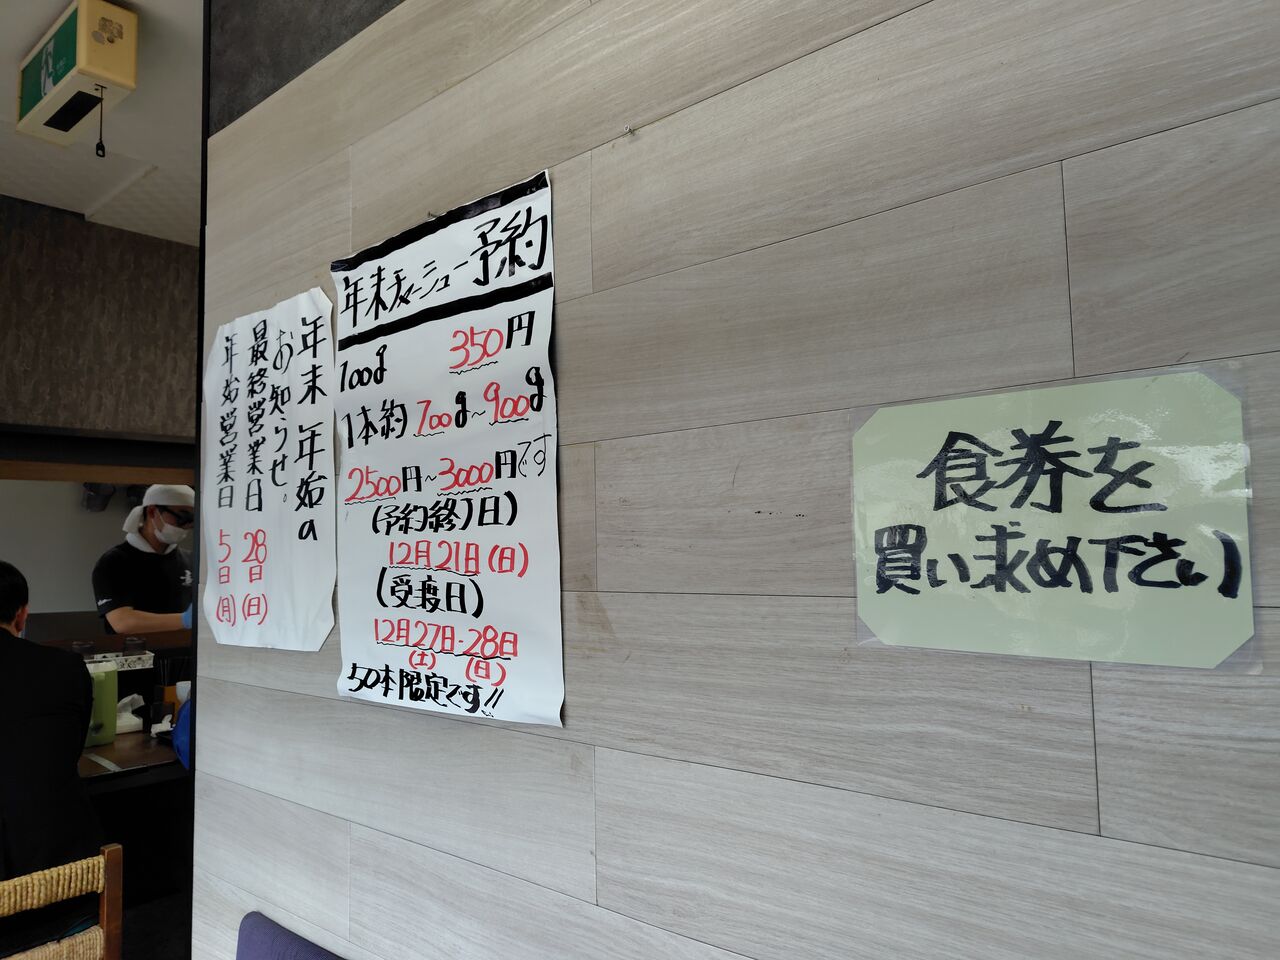 年末年始の
お知らせ。
最終営業日 28日(日)
年始営業日 5日(月)
年末チャーシュー予約
100g 350円
1本約700g~900g
2500円~3000円です
(予約終了日)
12月21日(日)
(受渡日)
12月27日-28日
(土) (日)
50本限定です!!
食券を
買い求め下さい